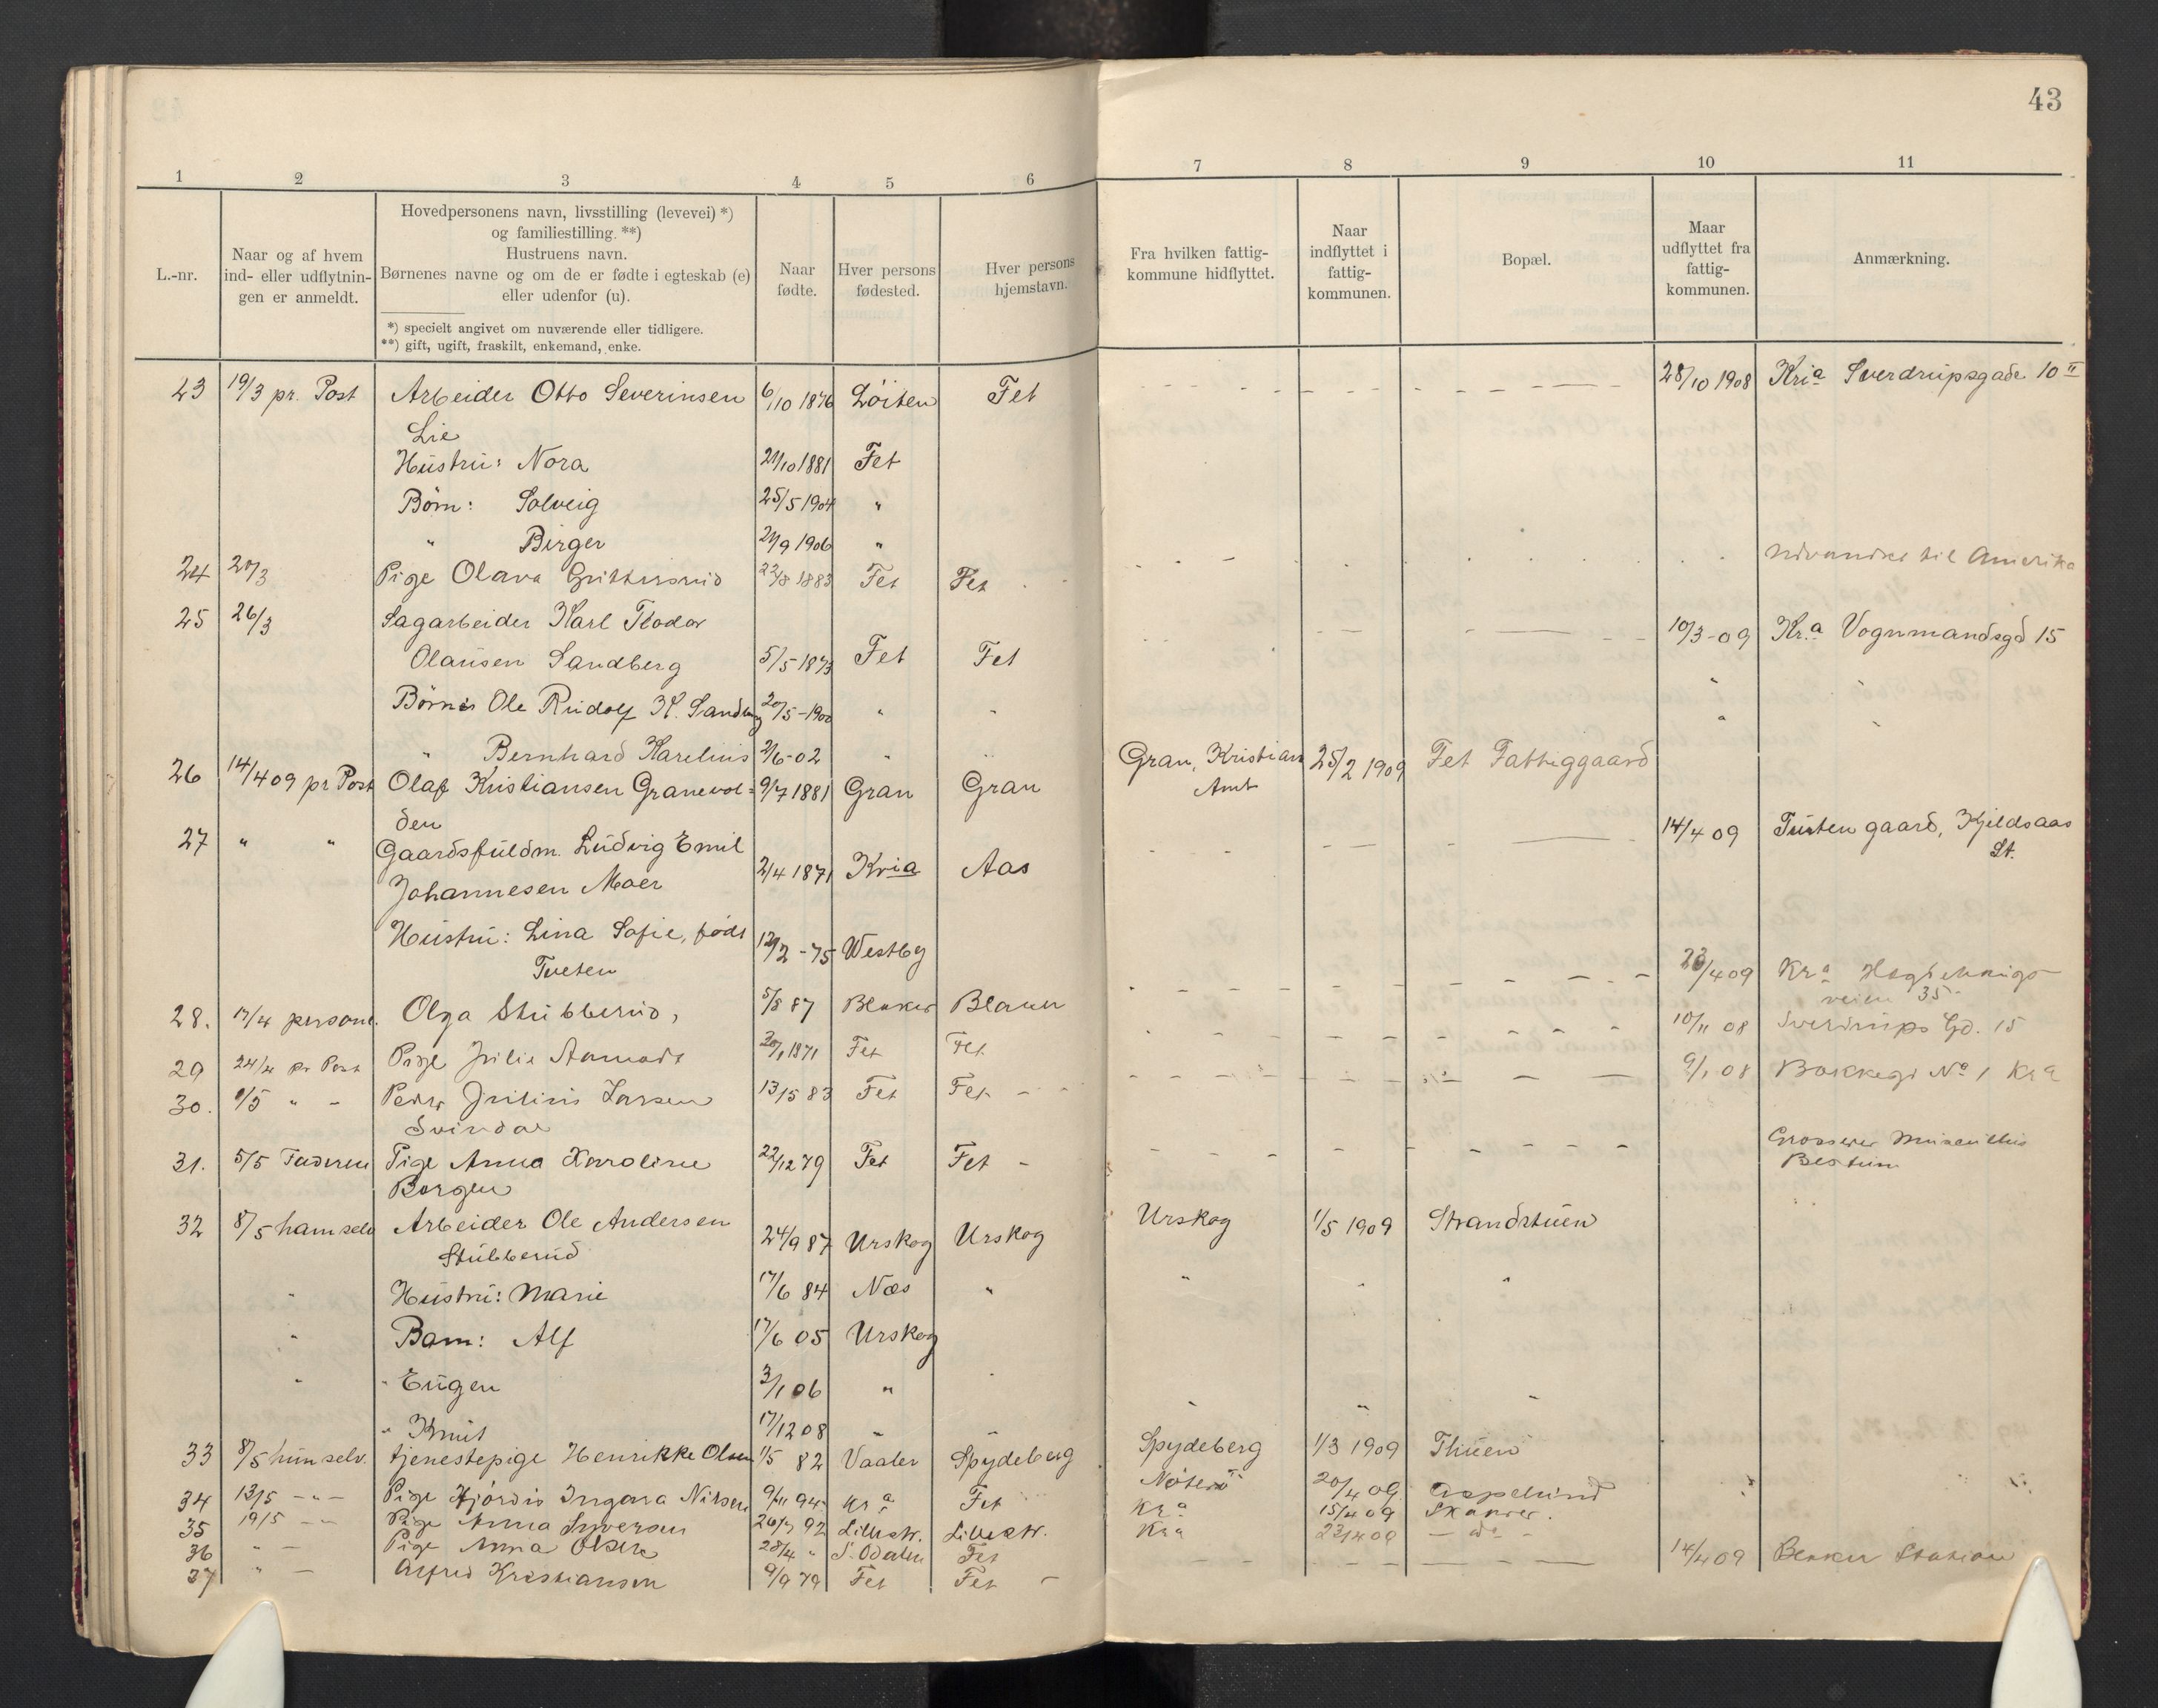 43
1 2 3 4 5 6 7 8 9 10 11
L.-nr.
Naar og af hvem
ind- eller udflytnin-
gen er anmeldt.
Hovedpersonens navn, livsstilling (levevei) *)
og familiestilling. **)
Hustruens navn.
Børnenes navne og om de er fødte i egteskab (e)
eller udenfor (u).
*) specielt angivet om nuværende eller tidligere.
**) gift, ugift, fraskilt, enkemand, enke.
Naar
fødte.
Hver persons
fødested.
Hver persons
hjemstavn.
Fra hvilken fattig-
kommune hidflyttet.
Naar
indflyttet i
fattig-
kommunen.
Bopæl.
Maar
udflyttet fra
fattig-
kommunen.
Anmærkning.
23 19/3 pr. Post Arbeider Otto Severinsen 6/10 1876 Löiten Fet 28/10 1908 Kria Sverdrupsgade 10 II
Lie
Hustru: Nora 1881 Fet
Börn: Solveig 25/5 1904 "
" Birger 1906 "
24 Pige Olava 1883 Fet Fet til Amerika
25 26/3 Sagarbeider Karl Teodor 10/3-09 Kr.a Vognmandsgd 15
Olausen Sandberg 5/5 1873 Fet Fet
Ole Rudolf K. Sandberg 20/5-1900 " " " "
" Bernhard Karelius 2/6-02 " " " "
26 14/4 09 pr Post Olaf Kristiansen Granevol= 9/7 1881 Gran Gran Gran, Kristians 25/2 1909 Fet Fattiggaard
den Amt
27 " " Gaardsfuldm. Ludvig Emil 14/4 09 gaard, Kjeldsaas
Johannesen Moer 2/4 1871 Kria Aas St.
Hustru: Lina Sofie, født 12/2-75 Westby
Tveten
28. 17/4 Olga Stubberud, 5/8 87 Blaker Blaker /4 09 Kra
veien 35
29 24/4 pr Post Pige Julie 1871 Fet Fet 10/11 08 Sverdrups Gd. 15
30. " - Peder Julius Larsen 13/5 83 Fet Fet - 9/1 08 No 1 Kra
Svindal
31. 5/5 Faderen Pige Anna Karoline 22/12 79 Fet Fet - Grosserer
Borgen Bestum
32 8/5 ham selv Arbeider Ole Andersen 24/9 87 Urskog Urskog Urskog 1/5 1909 Strandstuen
Stubberud
" Hustru: Marie 17/6 84 Næs " " " "
" Barn: Alf 17/6 05 Urskog
" " Eugen 3/1 06 " "
" Knut 17/12 08 " " " " "
33 8/5 hun selv. tjenestepige Henrikke Olsen 1/5 82 Vaaler Spydeberg Spydeberg 1/3 1909 Thuen
34 13/5 -"- Pige Hjördis Ingara Nilsen 9/11 94 Kra Fet Nöterö 20/4 09
35 19/5 -"- Pige Anna Syversen 26/7 92 Lillestr. Lillestr. Kra 15/4 09
36 " - Pige Anna Olsen 28/4 " S. Odalen Fet Kra 23/4 09 - do -
37 " - Alfred Kristiansen 9/9 79 Fet Fet - 14/4 09 Station